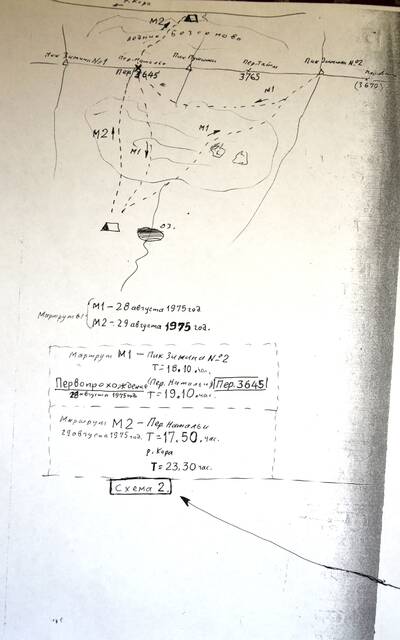 р. Кора
М2
ледник Безсонова
Пик Зимина №1
Пер. Натальи
Пер. 3645
Пик Пушкина
Пер. Тайны
3765
Пик Зимина №2
(3670)
М1
М2
М1
М1
оз.
Маршруты
М1 – 28 августа 1975 год
М2 – 29 августа 1975 год.
Маршрут М1 – Пик Зимина №2
Т = 18.10. час.
Первопрохождение (Пер. Натальи) Пер. 3645
28 августа 1975 год Т = 19.10. час.
Маршрут М2 – Пер. Натальи
29 августа 1975 год. Т = 17.50. час.
р. Кора
Т = 23.30 час.
Схема 2.